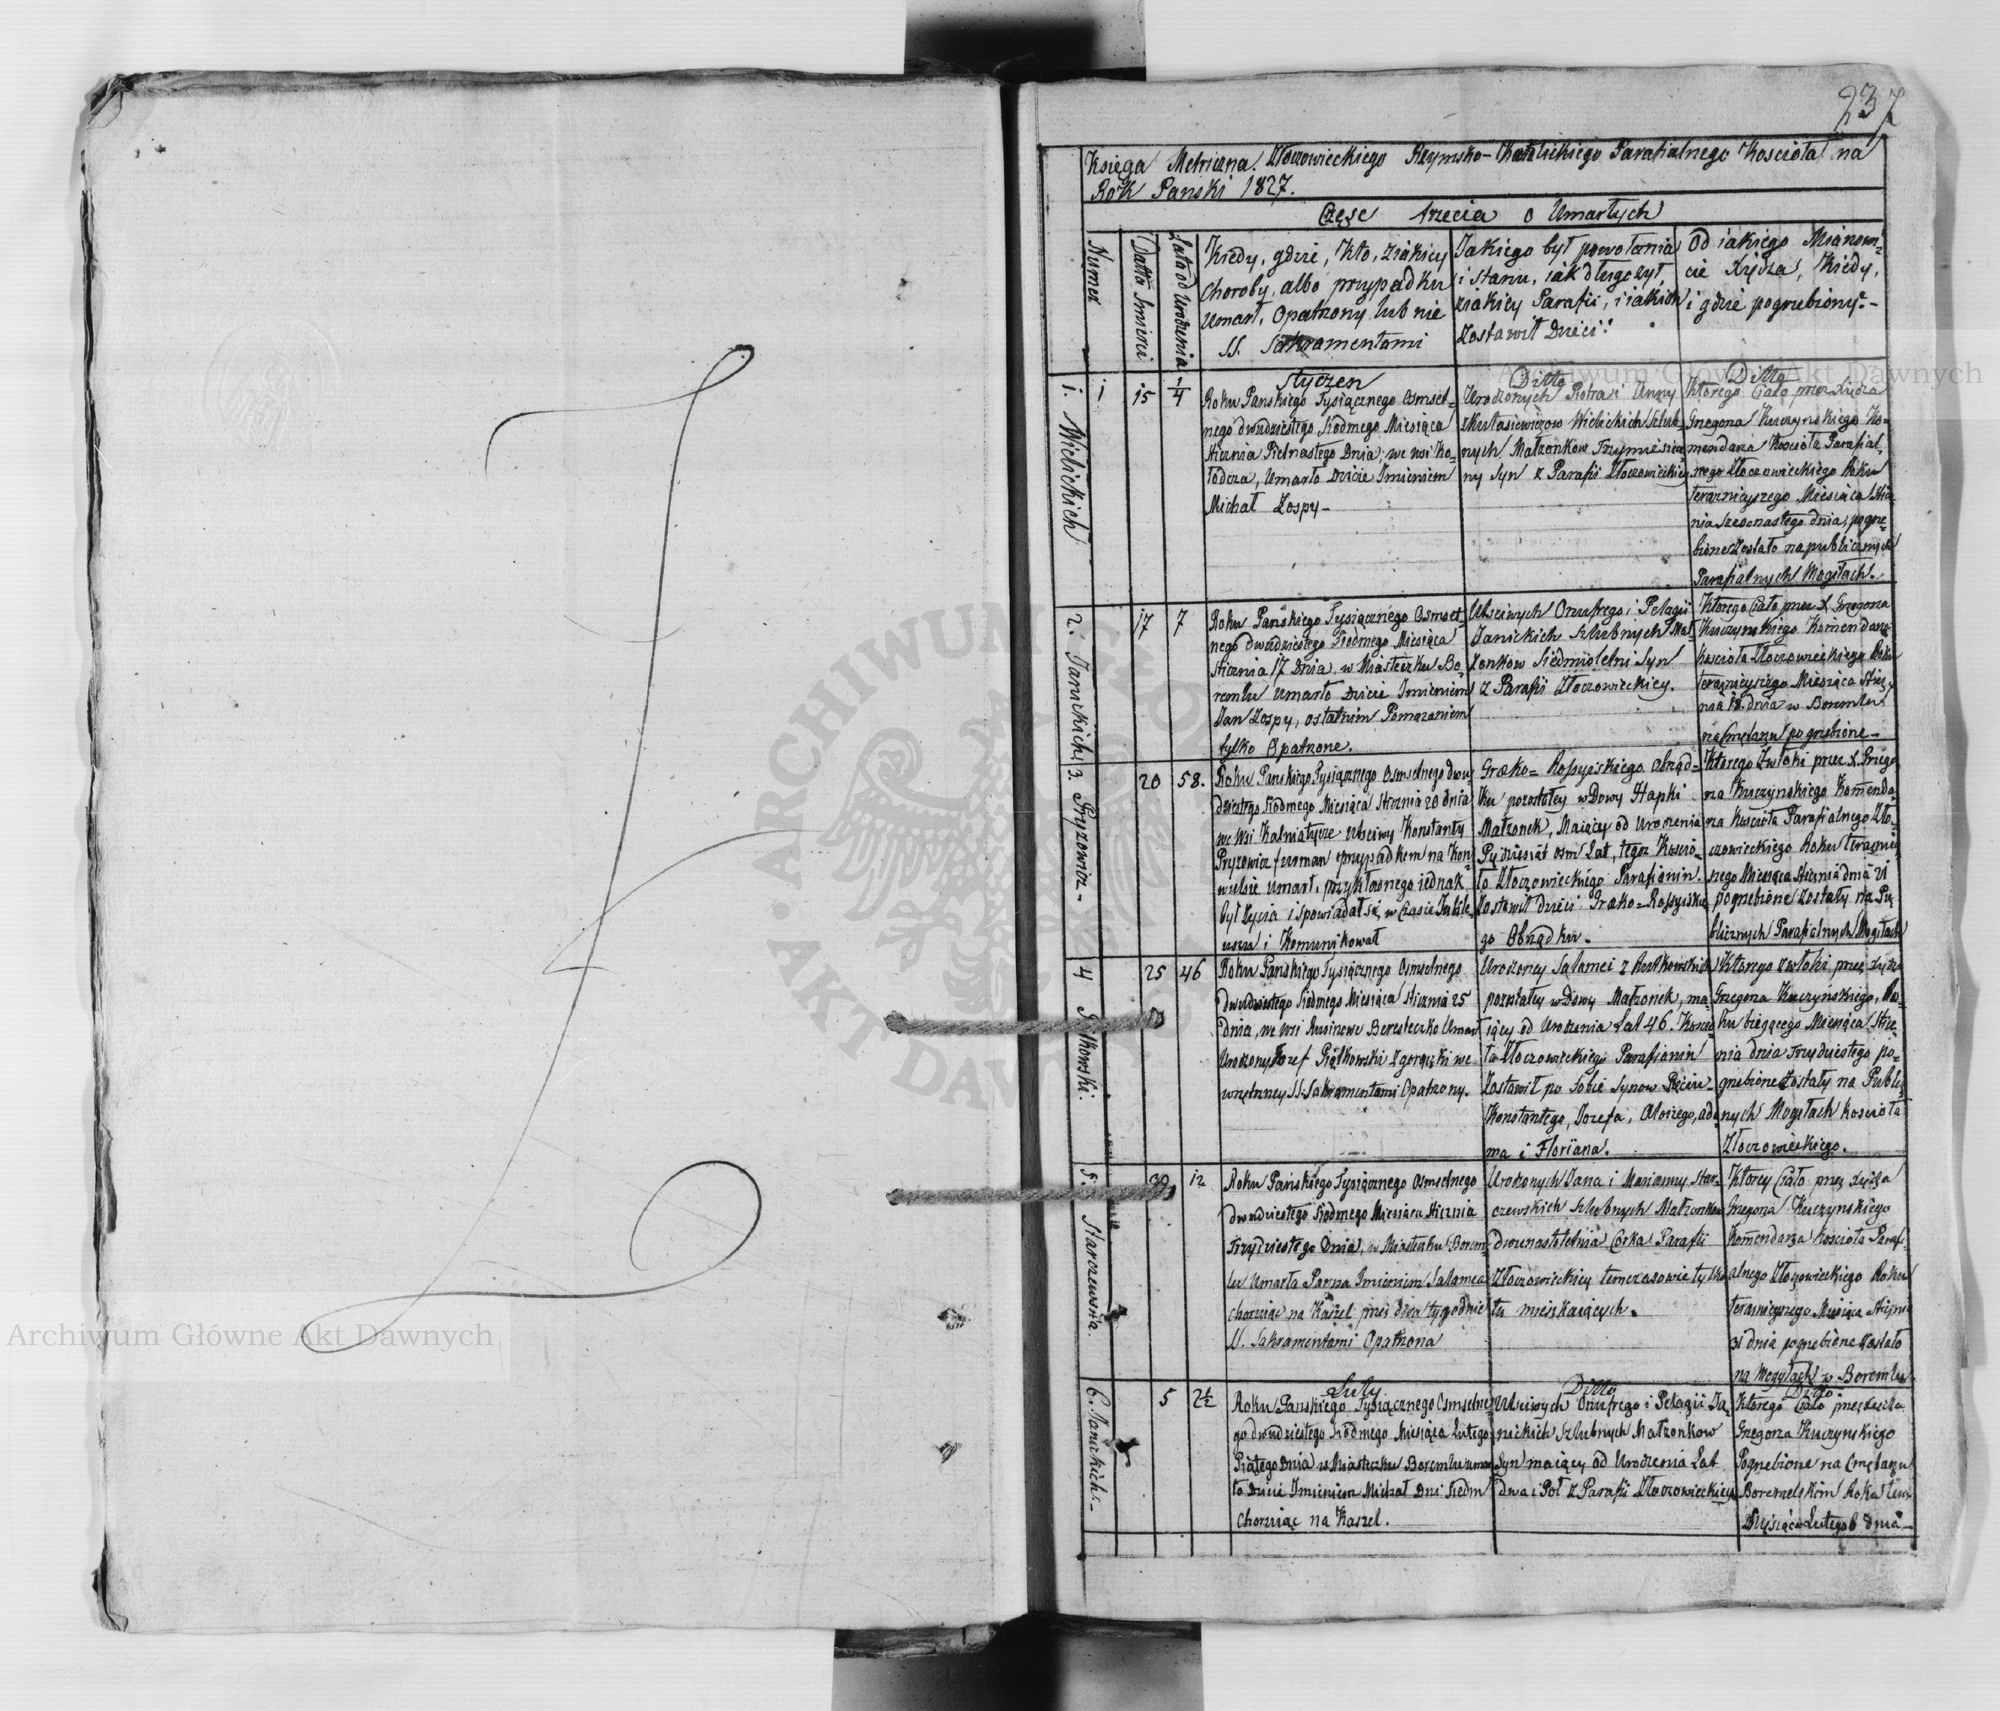 237
Księga Metriczna Złoczowieckiego Rzymsko-Katolickiego Parafialnego Kościoła na
Rok Panski 1827.
Częsc trzecia o Umarłych
Numer
Datta Smierci
Lata od Urodzenia
Kiedy, gdzie, Kto, z iakiey
choroby, albo przypadku
umarł, Opatrzony lub nie
SS. Sakramentami
Jakiego był powołania
i stanu, iak długo żył,
z iakiey Parafii, i iakich
zostawił Dzieci:
Od iakiego Mianowi-
cie Xiędza, Kiedy,
i gdzie pogrzebiony.-
1. Wielickich
1
15
1/4
Styczen
Roku Panskiego Tysiącznego Osmset-
nego dwudziestego Siodmego Miesiąca
Sticznia Pietnastego Dnia, we wsi Ko-
łodcza, Umarło Dziecie Imieniem
Michał z ospy-
Ditto
Urodzonych Piotra i Anny
Wielickich Szlub-
nych Małżonkow Trzymiesięcz-
ny Syn z Parafii Złoczowieckiey
Ditto
Ktorego Ciało przez Xiędza
Gregorza Kuczynskiego Ko-
mendarza Kosciola Parafial-
nego Złoczowieckiego Roku
terazneyszego Miesiąca Stic-
nia Szesnastego dnia, pogrze-
bione zostało na publicznych
Parafialnych Mogiłach.
2. Janickich
17
7
Roku Pańskiego Tysiącznego Osmset-
nego dwudziestego Siodmego Miesiąca
Sticznia 17 Dnia, w Miasteczku Bo-
remlu umarło Dziecie Imieniem
Jan z ospy, ostatnim Pomazaniem
tylko Opatrzone.
Ucciwych Onufrego i Pelagii
Janickich Szlubnych Mał-
zonkow Siedmioletni Syn
z Parafii Złoczowieckiey.
Ktorego Ciało przez X. Gregorza
Kuczynskiego Komendarza
Kosciola Złoczowieckiego Roku
terazneyszego Miesiąca Stic-
nia 18. dnia w Boremlu
na Cmętarzu pogrzebione-
3. Pryzowicz-
20
58.
Roku Panskiego Tysiącznego Osmsetnego dwu-
dziestego Siodmego Miesiąca Sticznia 20 dnia
we Wsi Kalniatycze Ucciwy Konstanty
Pryzowicz furman przypadkem na Kon-
wulsie umarł, przykładnego jednak
był życia i spowiadał się w Czasie Jubile-
uszu i Komunikował
Græko=Rossyiskiego obrząd-
ku pozostałey wDowy Hapki
Małzonek, Maiący od Urozenia
Pędziesiąt osm Lat, tegoz Koscio-
ła Złoczowieckiego Parafianin.
Zostawił dzieci Græko=Rossyiskie-
go Obrządku.
Ktorego Zwłoki przez X. Grzego-
rza Kuczynskiego Komenda-
rza Kosciola Parafialnego Zło-
czowieckiego Roku terazniey-
szego Miesiąca Sticznia dnia 21
pogrzebione zostały na Pu-
blicznych Parafialnych Mogiłach
4
25
46
Roku Panskiego Tysiącznego Osmsetnego
dwudziestego Siodmego Miesiąca Sticznia 25
dnia, we wsi Beresteczko Umarł
Urodzony Jozef Piątkowski z gorączki we-
wnętrzney SS. Sakramentami Opatrzony.
Urodzoney Salamei z Rutkowskich
pozostałey wDowy Małzonek, ma-
iący od Urodzenia Lat 46. Koscio-
ła Złoczowieckiego Parafianin
Zostawił po Sobie Synow Pięciu
Konstantego, Jozefa, Aloizego, Ada-
ma i Floriana.
Ktorego zwłoki przez Xiędza
Grzegorza Kuczyńskiego, Ro-
ku bieżącego Miesiąca Stic-
nia dnia Trzydziestego po-
grzebione zostały na Publi-
cznych Mogiłach Kosciola
Złoczowieckiego.
5. Starczewskie.
30
12
Roku Pańskiego Tysiącznego Osmsetnego
dwudziestego Siodmego Miesiąca Sticznia
Trzydziestego Dnia, w Miasteczku Borem-
lu Umarła Panna Imieniem Salamea
choruiąc na Kaszel przez Dwa tygodnie
SS. Sakramentami Opatrzona
Urodzonych Jana i Marianny Star-
czewskich Szlubnych Małzonkow
dwunastoletnia Corka Parafii
Złoczowieckiey temczasowie tylko
tu mieszkaiących.
Ktorey Ciało przez Xiędza
Gregorza Kuczynskiego
Komendarza Kosciola Parafi-
alnego Złoczowieckiego Roku
terazneyszego Miesiąca Sticznia
31 dnia pogrzebione zostało
na Mogyłach w Boremlu
6. Janickich-
5
2 1/2
Luty
Roku Panskiego Tysiącznego Osmsetne-
go dwudziestego Siodmego Miesiąca Lutego
Piątego Dnia w Miasteczku Boremlu umar-
ło Dziecie Imieniem Michał Dni Siedm
Choruiąc na Kaszel.
Ditto
Ucciwych Onufrego i Pelagii Ja-
nickich Szlubnych Małzonkow
Syn maiący od Urodzenia Lat
dwa i Poł z Parafii Złoczowieckiey
Ditto
Ktorego Ciało przez Xiędza
Gregorza Kuczynskiego
Pogrzebione na Cmętarzu
Boremelskim Roku
Miesiąca Lutego 6 dnia-
Archiwum Główne Akt Dawnych
Archiwum Główne Akt Dawnych
ARCHIWUM GŁÓWNE AKT DAWNYCH